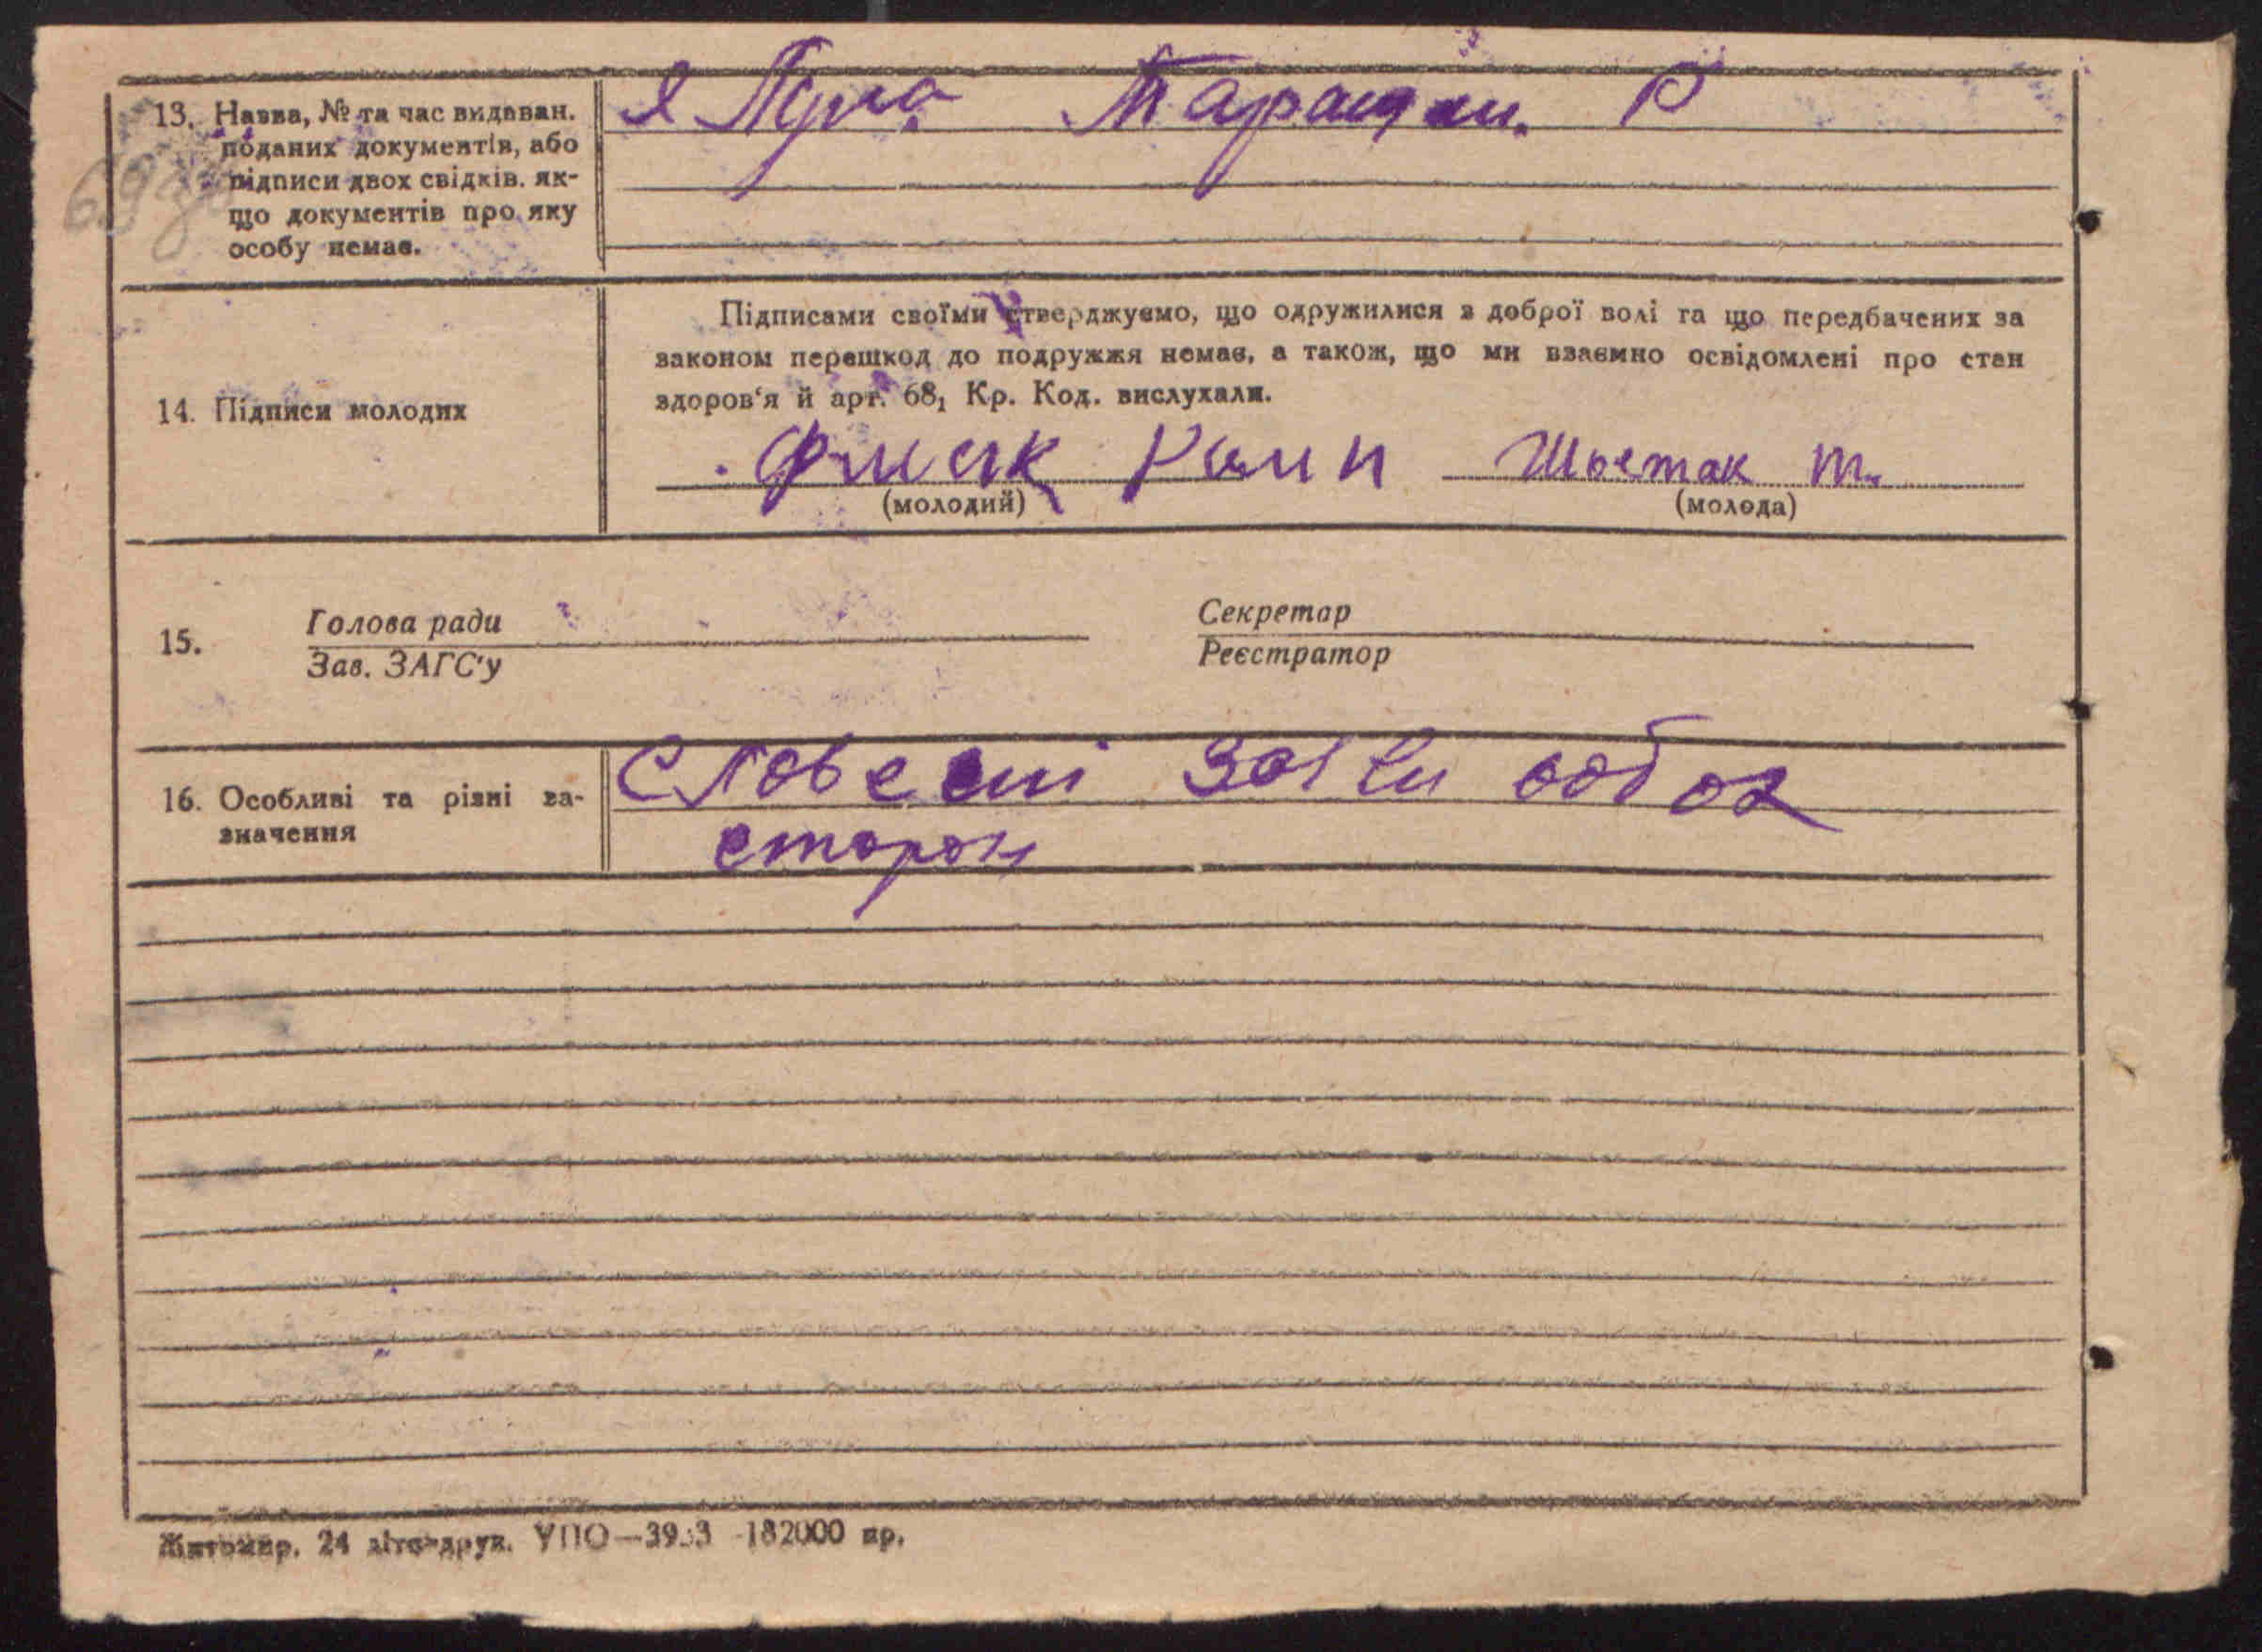 13. Назва, № та час видаван.
поданих документів, або
підписи двох свідків. як-
що документів про яку
особу немає.
69
14. Підписи молодих
Підписами своїми стверджуємо, що одружилися з доброї волі та що передбачених за
законом перешкод до подружжя немає, а також, що ми взаємно освідомлені про стан
здоров'я й арт. 68₁ Кр. Код. вислухали.
Шостак Т.
(молодий) (молода)
15. Голова ради
Зав. ЗАГС'у
Секретар
Реєстратор
16. Особливі та різні за-
значення
Словесні заяви обох
сторон
Житомир. 24 літо-друк. УПО—3933 -182000 пр.